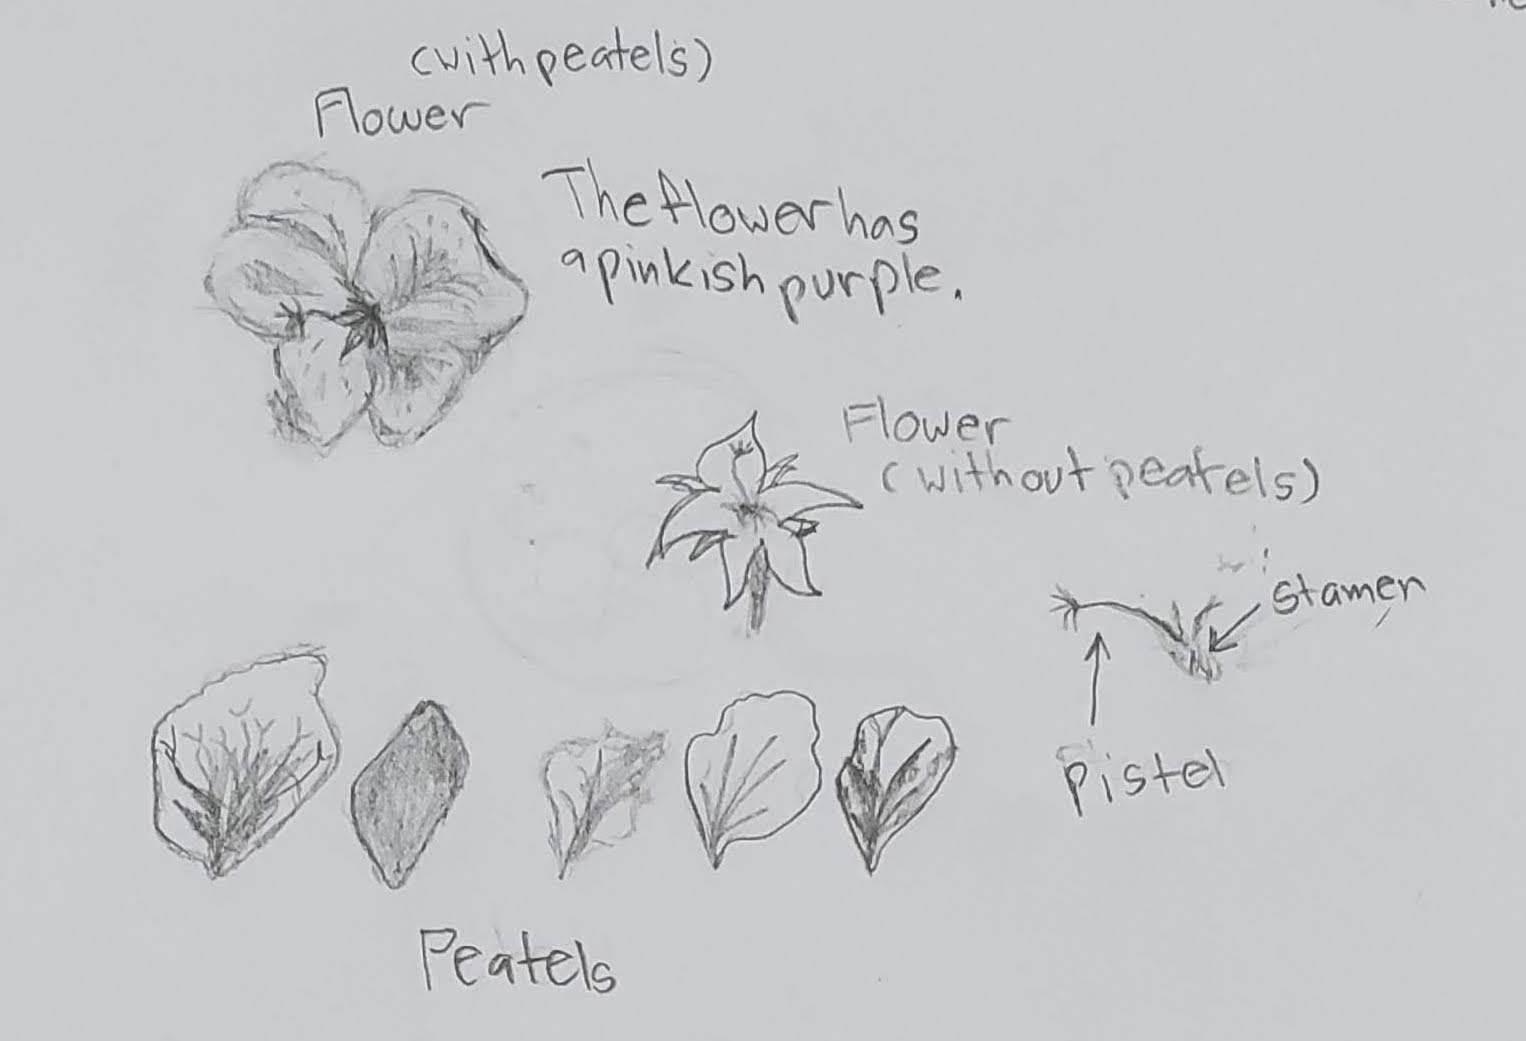 (with peatels)
Flower
The flower has
a pinkish purple.
Flower
(without peatels)
Stamen
Pistel
Peatels